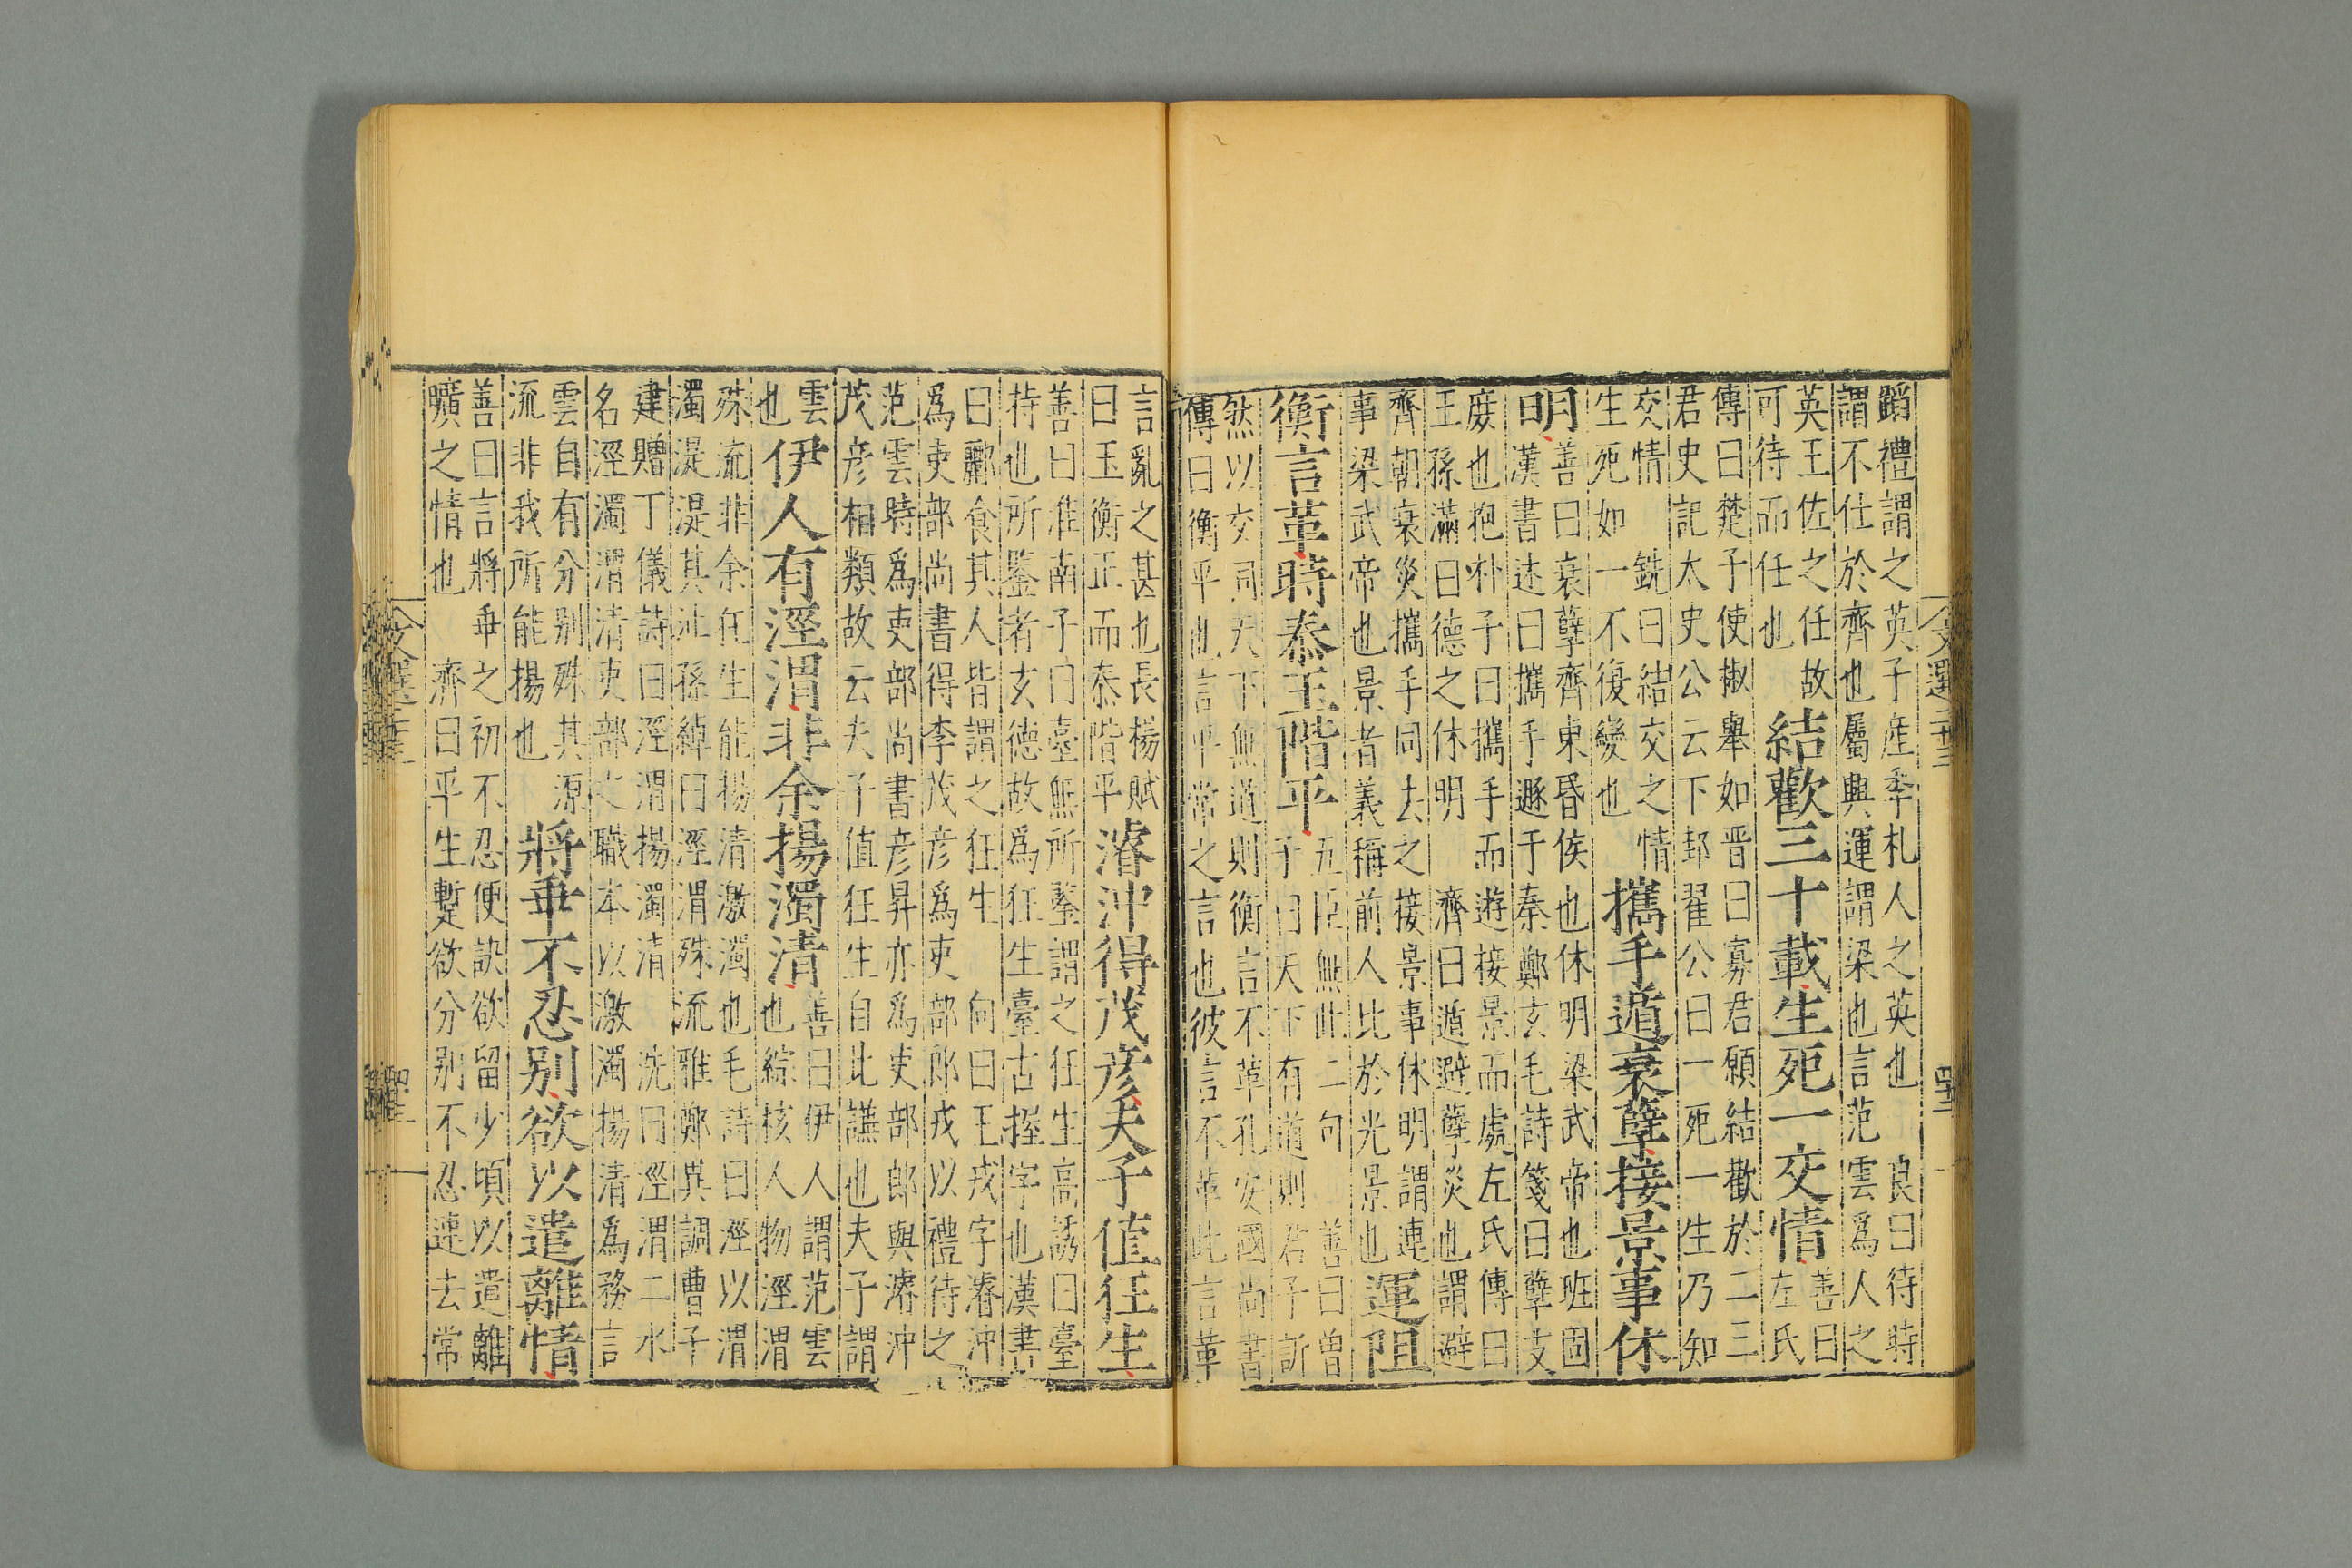 蹈禮謂之英子產季札人之英也　良曰待時
謂不仕於齊也屬興運謂梁也言范雲為人之
英王佐之任故
可待而任也
結歡三十載生死一交情
善曰
左氏
傳曰楚子使椒舉如晉曰寡君願結歡於二三
君史記太史公云下邽翟公曰一死一生乃知
交情　銑曰結交之情
生死如一不復變也
攜手遁衰孽接景事休
明
善曰衰孽齊東昏侯也休明梁武帝也班固
漢書述曰攜手遯于秦鄭玄毛詩箋曰孽支
庶也抱朴子曰攜手而遊接景而處左氏傳曰
王孫滿曰德之休明　濟曰遁避孽災也謂避
齊朝衰災攜手同去之接景事休明謂連
事梁武帝也景者義稱前人比於光景也
運阻
衡言革時泰玉階平
五臣無此二句　善曰曾
子曰天下有道則君子訢
然以交同天下無道則衡言不革孔安國尚書
傳曰衡平也言平常之言也彼言不革此言革
言亂之甚也長楊賦
曰玉衡正而泰階平
濬沖得茂彥夫子值狂生
善曰淮南子曰臺無所鑒謂之狂生高誘曰臺
持也所鑒者玄德故為狂生臺古握字也漢書
曰酈食其人皆謂之狂生　向曰王戎字濬沖
為吏部尚書得李茂彥為吏部郎戎以禮待之
范雲時為吏部尚書彥昇亦為吏部郎與濬沖
茂彥相類故云夫子值狂生自比謙也夫子謂
雲
也
伊人有涇渭非余揚濁清
善曰伊人謂范雲
也綜核人物涇渭
殊流非余狂生能揚清激濁也毛詩曰涇以渭
濁湜湜其沚孫綽曰涇渭殊流雅鄭異調曹子
建贈丁儀詩曰涇渭揚濁清　銑曰涇渭二水
名涇濁渭清吏部之職本以激濁揚清為務言
雲自有分別殊其源
流非我所能揚也
將乖不忍別欲以遣離情
善曰言將乖之初不忍便訣欲留少頃以遣離
曠之情也　濟曰平生蹔欲分別不忍速去常